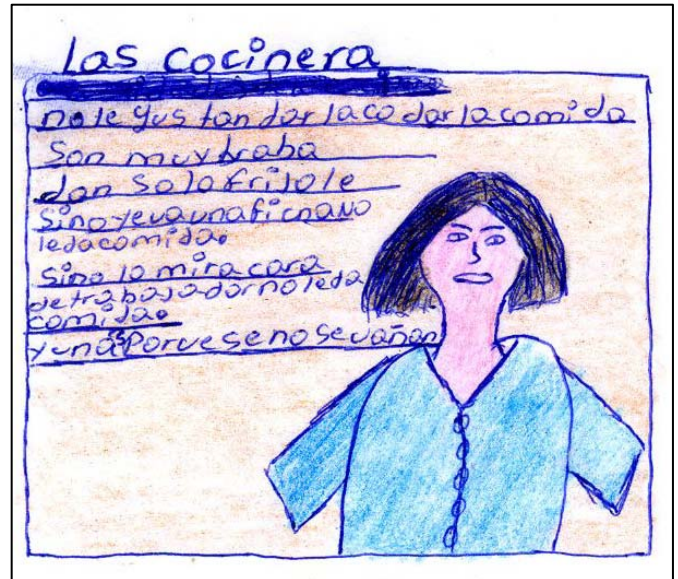 Las cocinera
no le gus tan dar la co dar la comida
Son muy braba
dan Solo frijole
Sino yeva una ficna No
le da comida.
Sino lo mira cara
de trabajador no le da
comida.
y unas Por ve se no se vañan